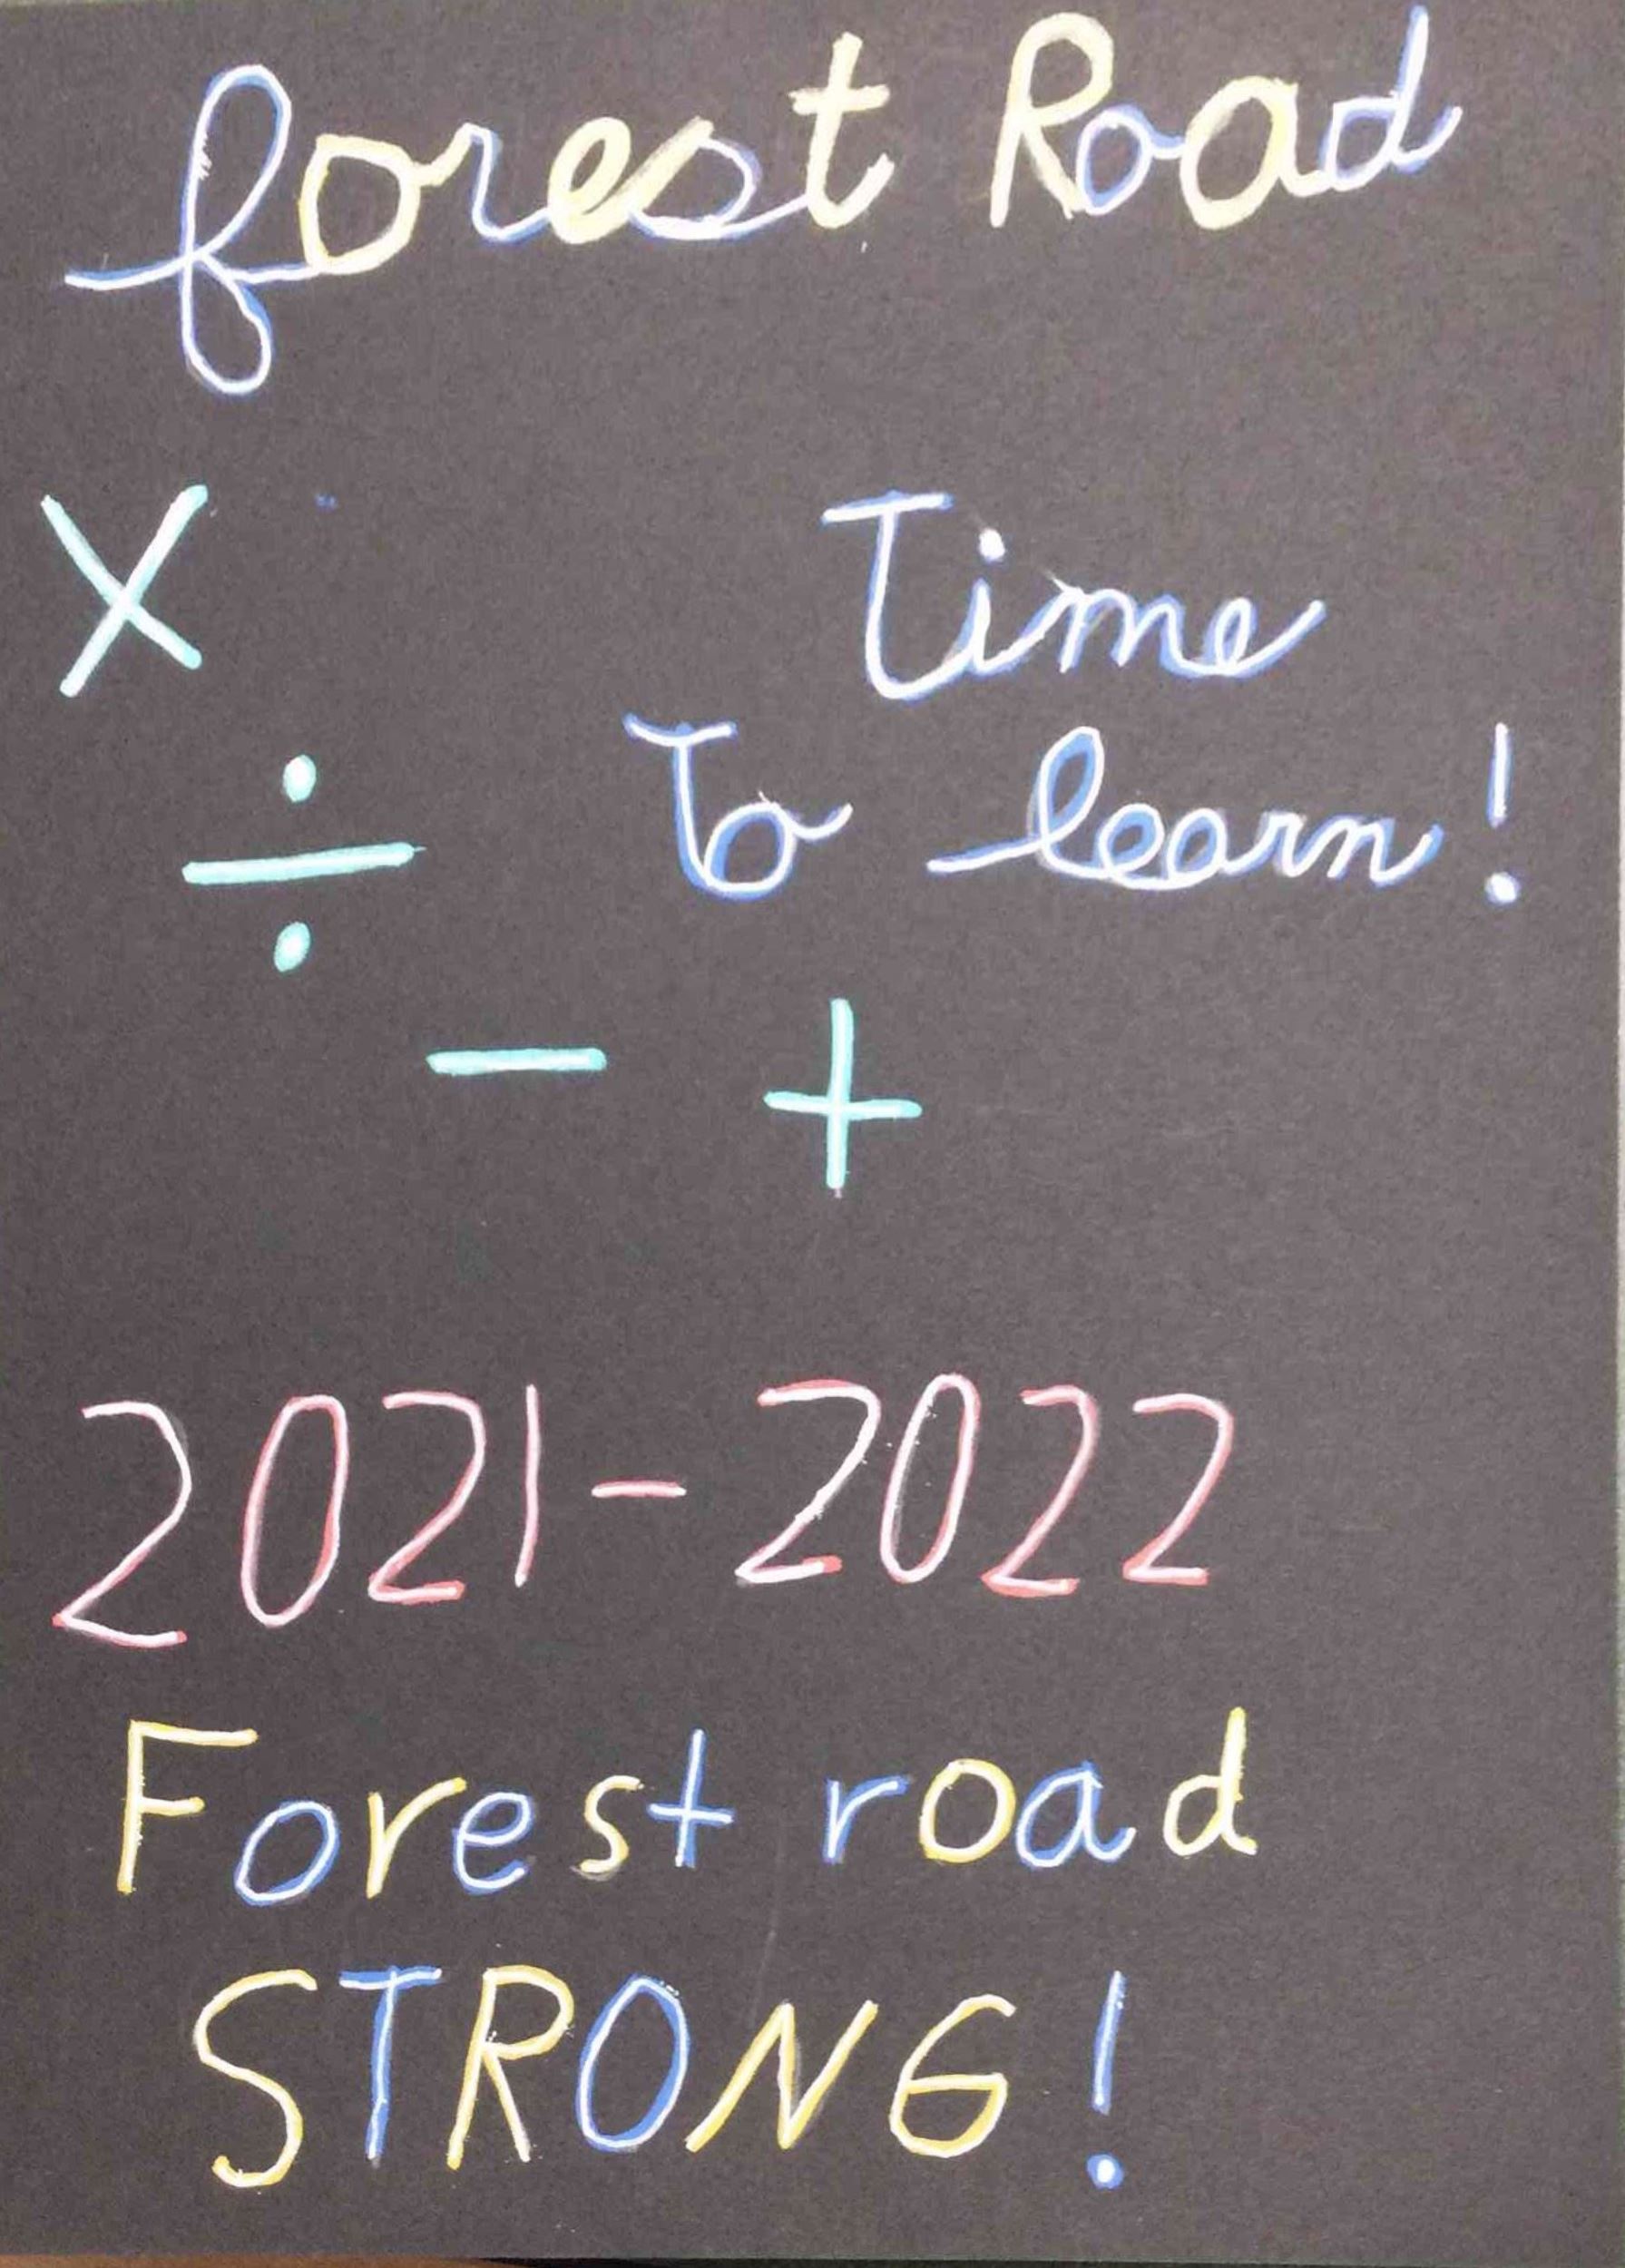 forest Road
×
Time
÷
To learn!
- +
2021-2022
Forest road
STRONG!